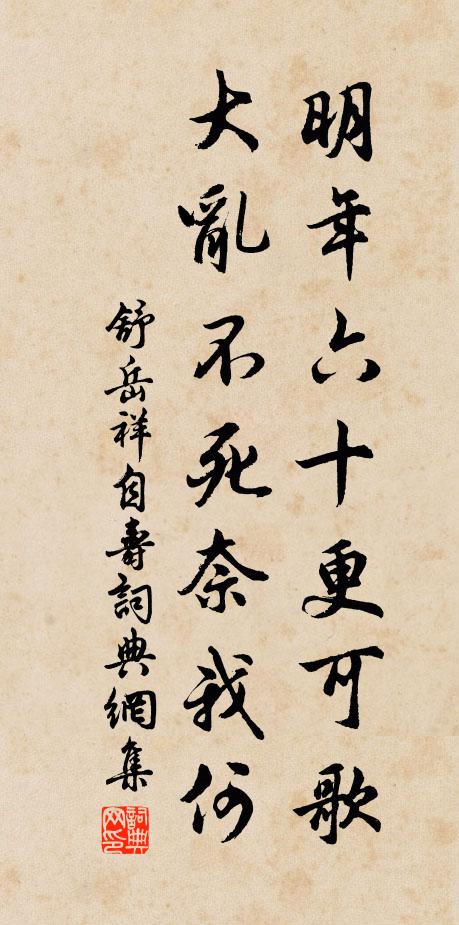 明年六十更可歌
大亂不死奈我何
舒岳祥自壽詞典網集
詞典网印